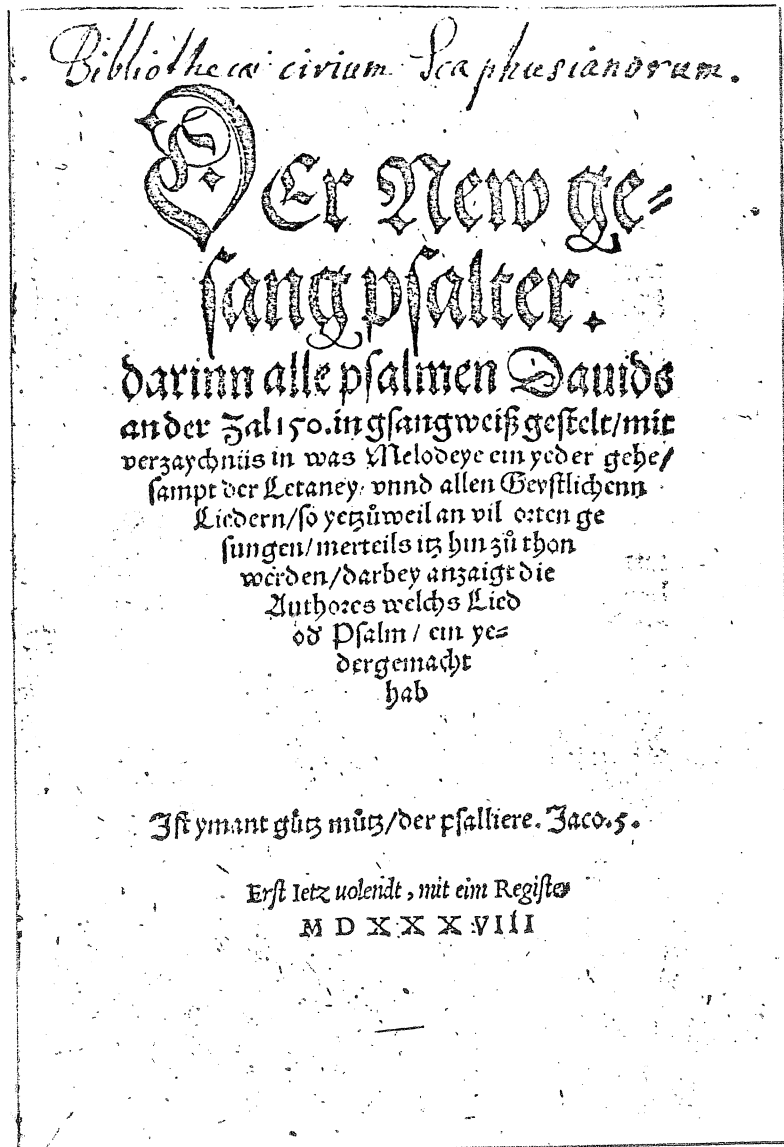 Bibliothecæ civium Scaphusianorum.
DEr New ge⸗
ſang pſalter.
darinn alle pſalmen Dauids
an der Zal 150. in gſangweiß geſtelt/mit
verzaychnüs in was Melodeye ein yeder gehe/
ſampt der Letaney, vnnd allen Geyſtlichenn
Liedern/ſo yetzůweil an vil orten ge
ſungen/merteils itz hin zů thon
werden/darbey anzaigt die
Authores welchs Lied
od Pſalm / ein ye⸗
dergemacht
hab
Iſt ymant gůtz můtz/der pſalliere. Jaco.5.
Erſt Ietz uolendt, mit eim Regiſter
M D X X X VIII